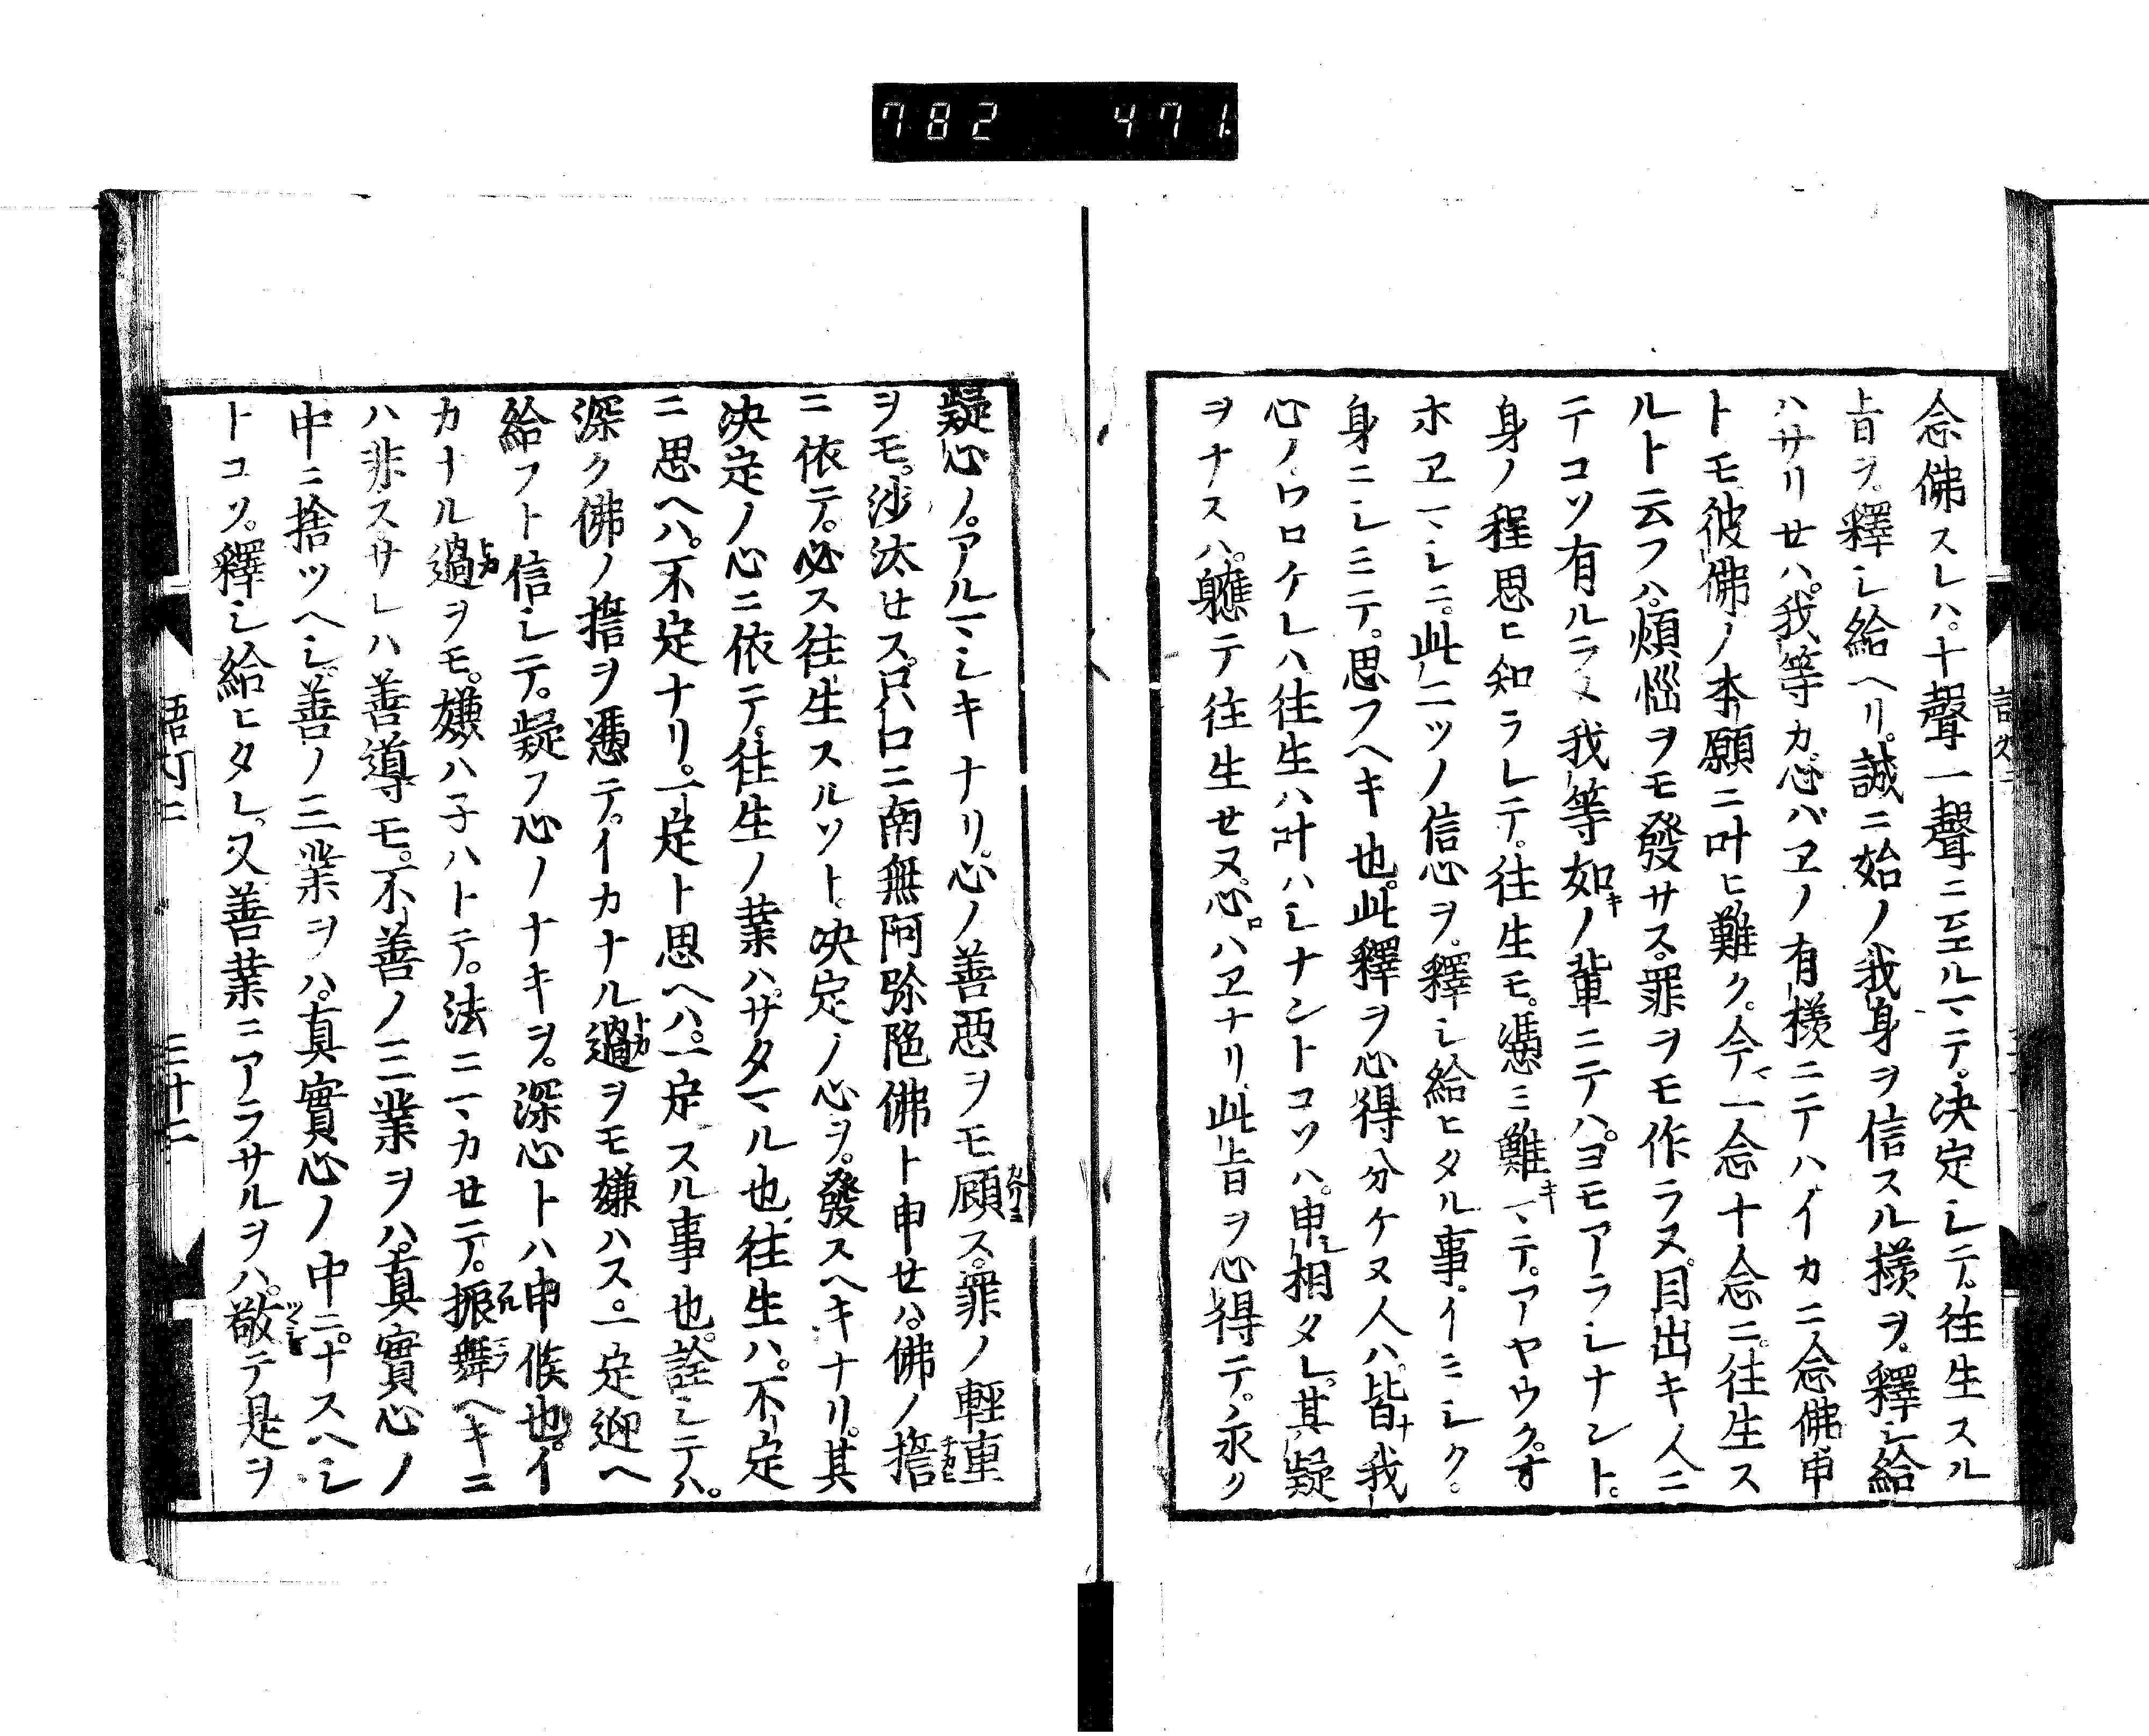 782 471
念佛スレハ。十聲一聲ニ至ルマテ。决定シテ。往生スル
旨ヲ。釋シ給ヘリ。誠ニ始ノ我身ヲ信スル樣ヲ。釋シ給
ハサリせハ。我等カ心バヱノ有樣ニテハイカニ念佛申
トモ。彼佛ノ本願ニ叶ヒ難ク。今一念十念ニ。往生ス
ルト云フハ。煩惱ヲモ發サス。罪ヲモ作ラヌ。目出キ人ニ
テコソ有ルラメ我等如ノ輩ニテハ。ヨモアラシナント。
身ノ程思ヒ知ラレテ。往生モ。憑ミ難マテ。アヤウク。オ
ホヱマシニ。此二ツノ信心ヲ。釋シ給ヒタル事。イミシク。
身ニシミテ。思フヘキ也。此釋ヲ心得分ケヌ人ハ。皆我
心ノワロケレハ往生ハ叶ハシナントコソハ。申相タレ。其疑
ヲナスハ。軈テ往生せヌ。心ハヱナリ。此旨ヲ心得テ。永ク
疑心ノ。アルマシキナリ。心ノ善惡ヲモ顧ス。罪ノ輕重
ヲモ。沙汰せス。只口ニ南無阿弥陀佛ト申せハ。佛ノ誓
ニ依テ。必ス往生スルソト。决定ノ心ヲ。發スヘキナリ。其
决定ノ心ニ依テ。往生ノ業ハ。サタマル也。往生ハ。不定
ニ思ヘハ。不定ナリ。一定ト思ヘハ。一定スル事也。詮シテハ。
深ク佛ノ誓ヲ憑テ。イカナル過ヲモ嫌ハス。一定迎ヘ
給フト信シテ。疑フ心ノナキヲ。深心トハ申候也。イ
カナル過ヲモ。嫌ハ子ハトテ。法ニマカせテ。振舞ヘキニ
ハ非ス。サレハ善導モ。不善ノ三業ヲハ。真實心ノ
中ニ捨ツヘシ。善ノ三業ヲハ。真實心ノ中ニ。ナスヘシ
トコソ。釋シ給ヒタレ。又善業ニアラサルヲハ。敬テ是ヲ
語灯二 三十二